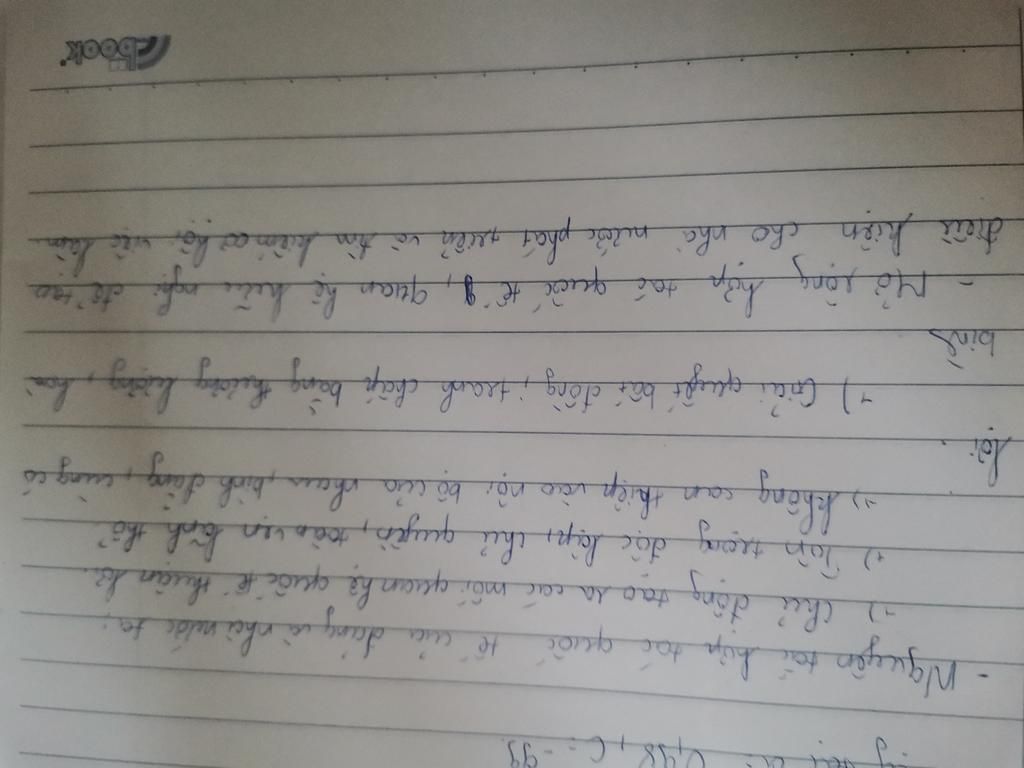 0,98, C = -99
- Nguyên tắc hợp tác quốc tế của đảng và nhà nước ta:
+) Chủ động tạo ra các mối quan hệ quốc tế thuận lợi.
+) Tôn trọng độc lập, chủ quyền, toàn vẹn lãnh thổ
+) không can thiệp vào nội bộ của nhau, bình đẳng, cùng có
lợi.
+) Giải quyết bất đồng, tranh chấp bằng thương lượng, hoà
bình
- Mở rộng hợp tác quốc tế, quan hệ hữu nghị để tạo
điều kiện cho nhà nước phát triển và tìm kiếm cơ hội việc làm
book